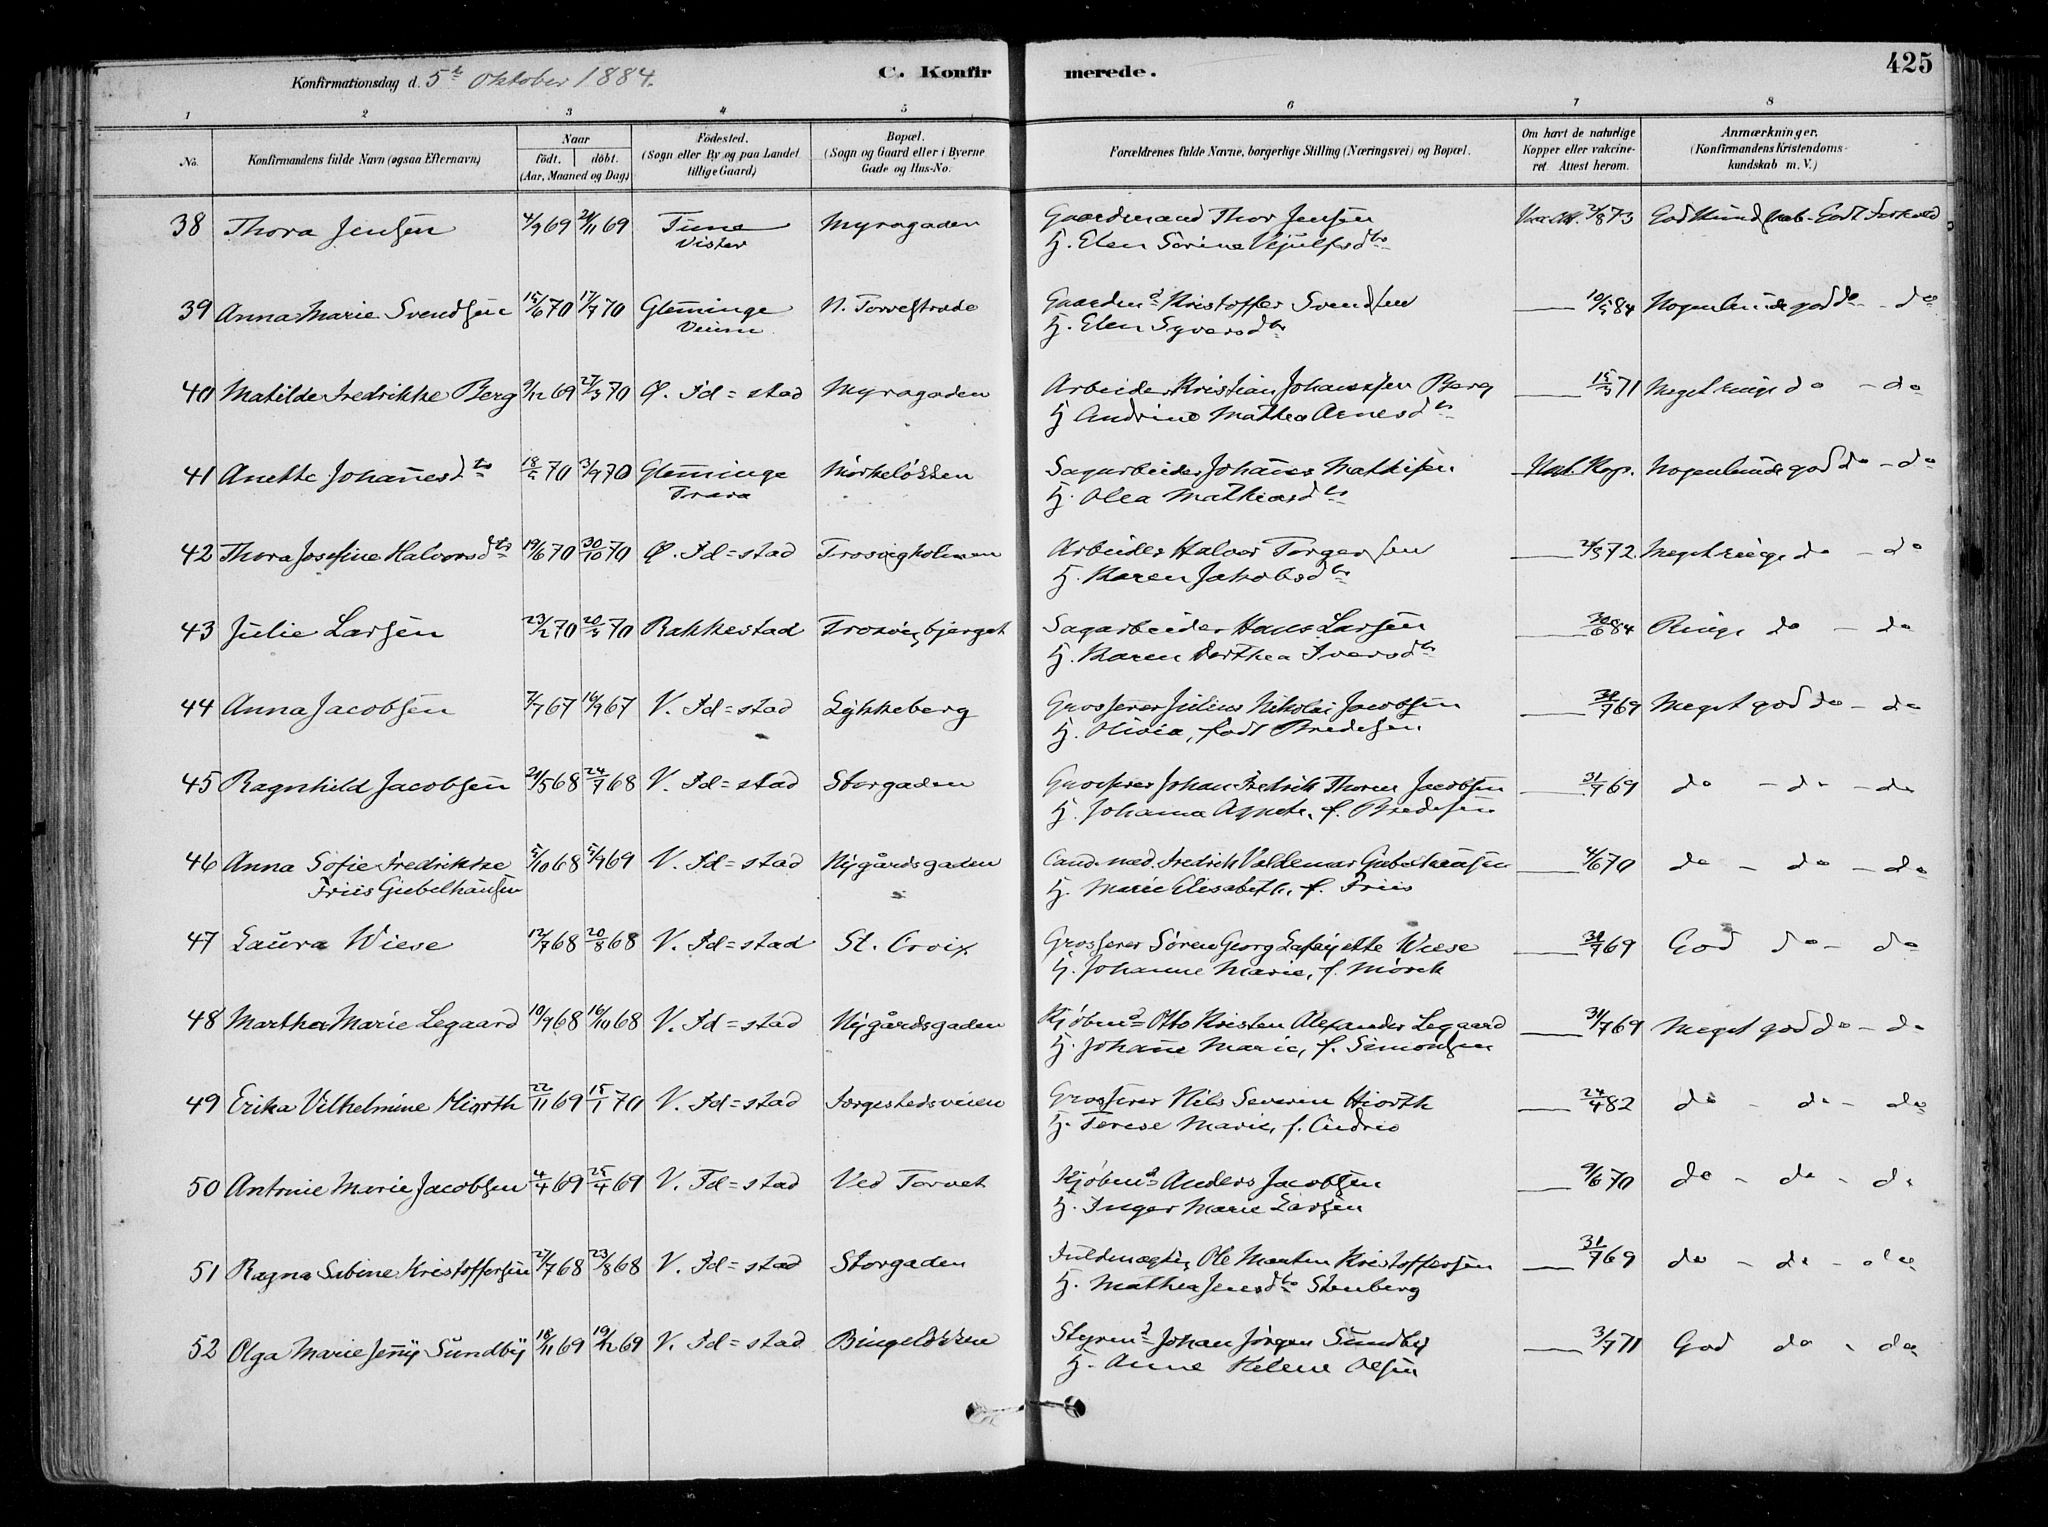 425
Konfirmationsdag d. 5te Oktober 1884.
C. Konfirmerede.
1 2 3 4 5 6 7 8
No. Konfirmandens fulde Navn (ogsaa Efternavn) Naar født. døbt. (Aar, Maaned og Dag) Fødested. (Sogn eller By og paa Landet tillige Gaard) Bopæl. (Sogn og Gaard eller i Byerne Gade og Hus-No. Forældrenes fulde Navne, borgerlige Stilling (Næringsvei) og Bopæl. Om havt de naturlige Kopper eller vakcineret. Attest herom. Anmærkninger. (Konfirmandens Kristendomskundskab m. V.)
38 Thora Jensen 4/9 69 21/11 69 Tune Myragaden Gaardmand Thor Jensen Vac. Att. 2/8 73 God Kundskab - Godt Forhold
Vister H. Elen Sørine Vejulfsdtr
39 Anna Marie Svendsen 15/6 70 17/7 70 Glemminge N. Torvestræde Gaardmd Kristoffer Svendsen — 10/5 84 Nogenlunde god do - do
Veum H. Elen Syversdtr
40 Matilde Fredrikke Berg 9/12 69 27/3 70 Ø. Fd=stad Myragaden Arbeider Kristian Johannesen Berg — 15/3 71 Meget ringe do - do
H. Andrine Mathea Arnesdtr
41 Anette Johannesdtr 18/5 70 3/9 70 Glemminge Mørkeløkken Sagarbeider Johannes Mathisen Nat. Kop. Nogenlunde god do - do
Trara H. Olea Mathiasdtr
42 Thora Josefine Halvorsdtr 19/6 70 30/10 70 Ø. Fd=stad Trosvigholmen Arbeider Halvor Torgersen — 2/5 72 Meget ringe do - do
H. Karen Jakobsdtr
43 Julie Larsen 23/2 70 20/3 70 Rakkestad Trosvigbjerget Sagarbeider Hans Larsen — 30/6 84 Ringe do - do
H. Karen Dorthea Iversdtr
44 Anna Jacobsen 7/7 67 16/9 67 V. Fd=stad Lykkeberg Grosserer Julius Nikolai Jacobsen — 31/7 69 Meget god do - do
H. Olivia, født Bredesen
45 Ragnhild Jacobsen 21/5 68 24/7 68 V. Fd=stad Storgaden Grosserer Johan Fredrik Jacobsen — 31/7 69 do - do - do
H. Johanna Agnete, f. Bredesen
46 Anna Sofie Fredrikke 5/10 68 5/9 69 V. Fd=stad Nygårdsgaden Cand. med. Fredrik Valdemar Giebelhausen — 4/6 70 do - do - do
Friis Giebelhausen H. Marie Elisabeth, f. Friis
47 Laura Wiese 12/7 68 20/8 68 V. Fd=stad St. Croix Grosserer Søren Georg Lafayette Wiese — 31/7 69 God do - do
H. Johanne Marie, f. Mørch
48 Martha Marie Legaard 10/9 68 16/10 68 V. Fd=stad Nygårdsgaden Kjøbmd Otto Kristen Alexander Legaard — 31/7 69 Meget god do - do
H. Johanne Marie, f. Simonsen
49 Erika Vilhelmine Hiorth 22/11 69 15/1 70 V. Fd=stad Færgestedsveien Grosserer Nils Severin Hiorth — 24/4 82 do - do - do
H. Terese Marie, f.
50 Antonie Marie Jacobsen 4/4 69 25/4 69 V. Fd=stad Ved Torvet Kjøbmd Anders Jacobsen — 9/6 70 do - do - do
H. Inger Marie Larsen
51 Ragna Sabine Kristoffersen 27/7 68 23/8 68 V. Fd=stad Storgaden Fuldmægtig Ole Morten Kristoffersen — 31/7 69 do - do - do
H. Mathea Jensdtr Stenberg
52 Olga Marie Jenny Sundby 18/11 69 19/12 69 V. Fd=stad Bingeløkken Styrmd Johan Jørgen Sundby — 3/7 71 God do - do
H. Anne Helene Olsen